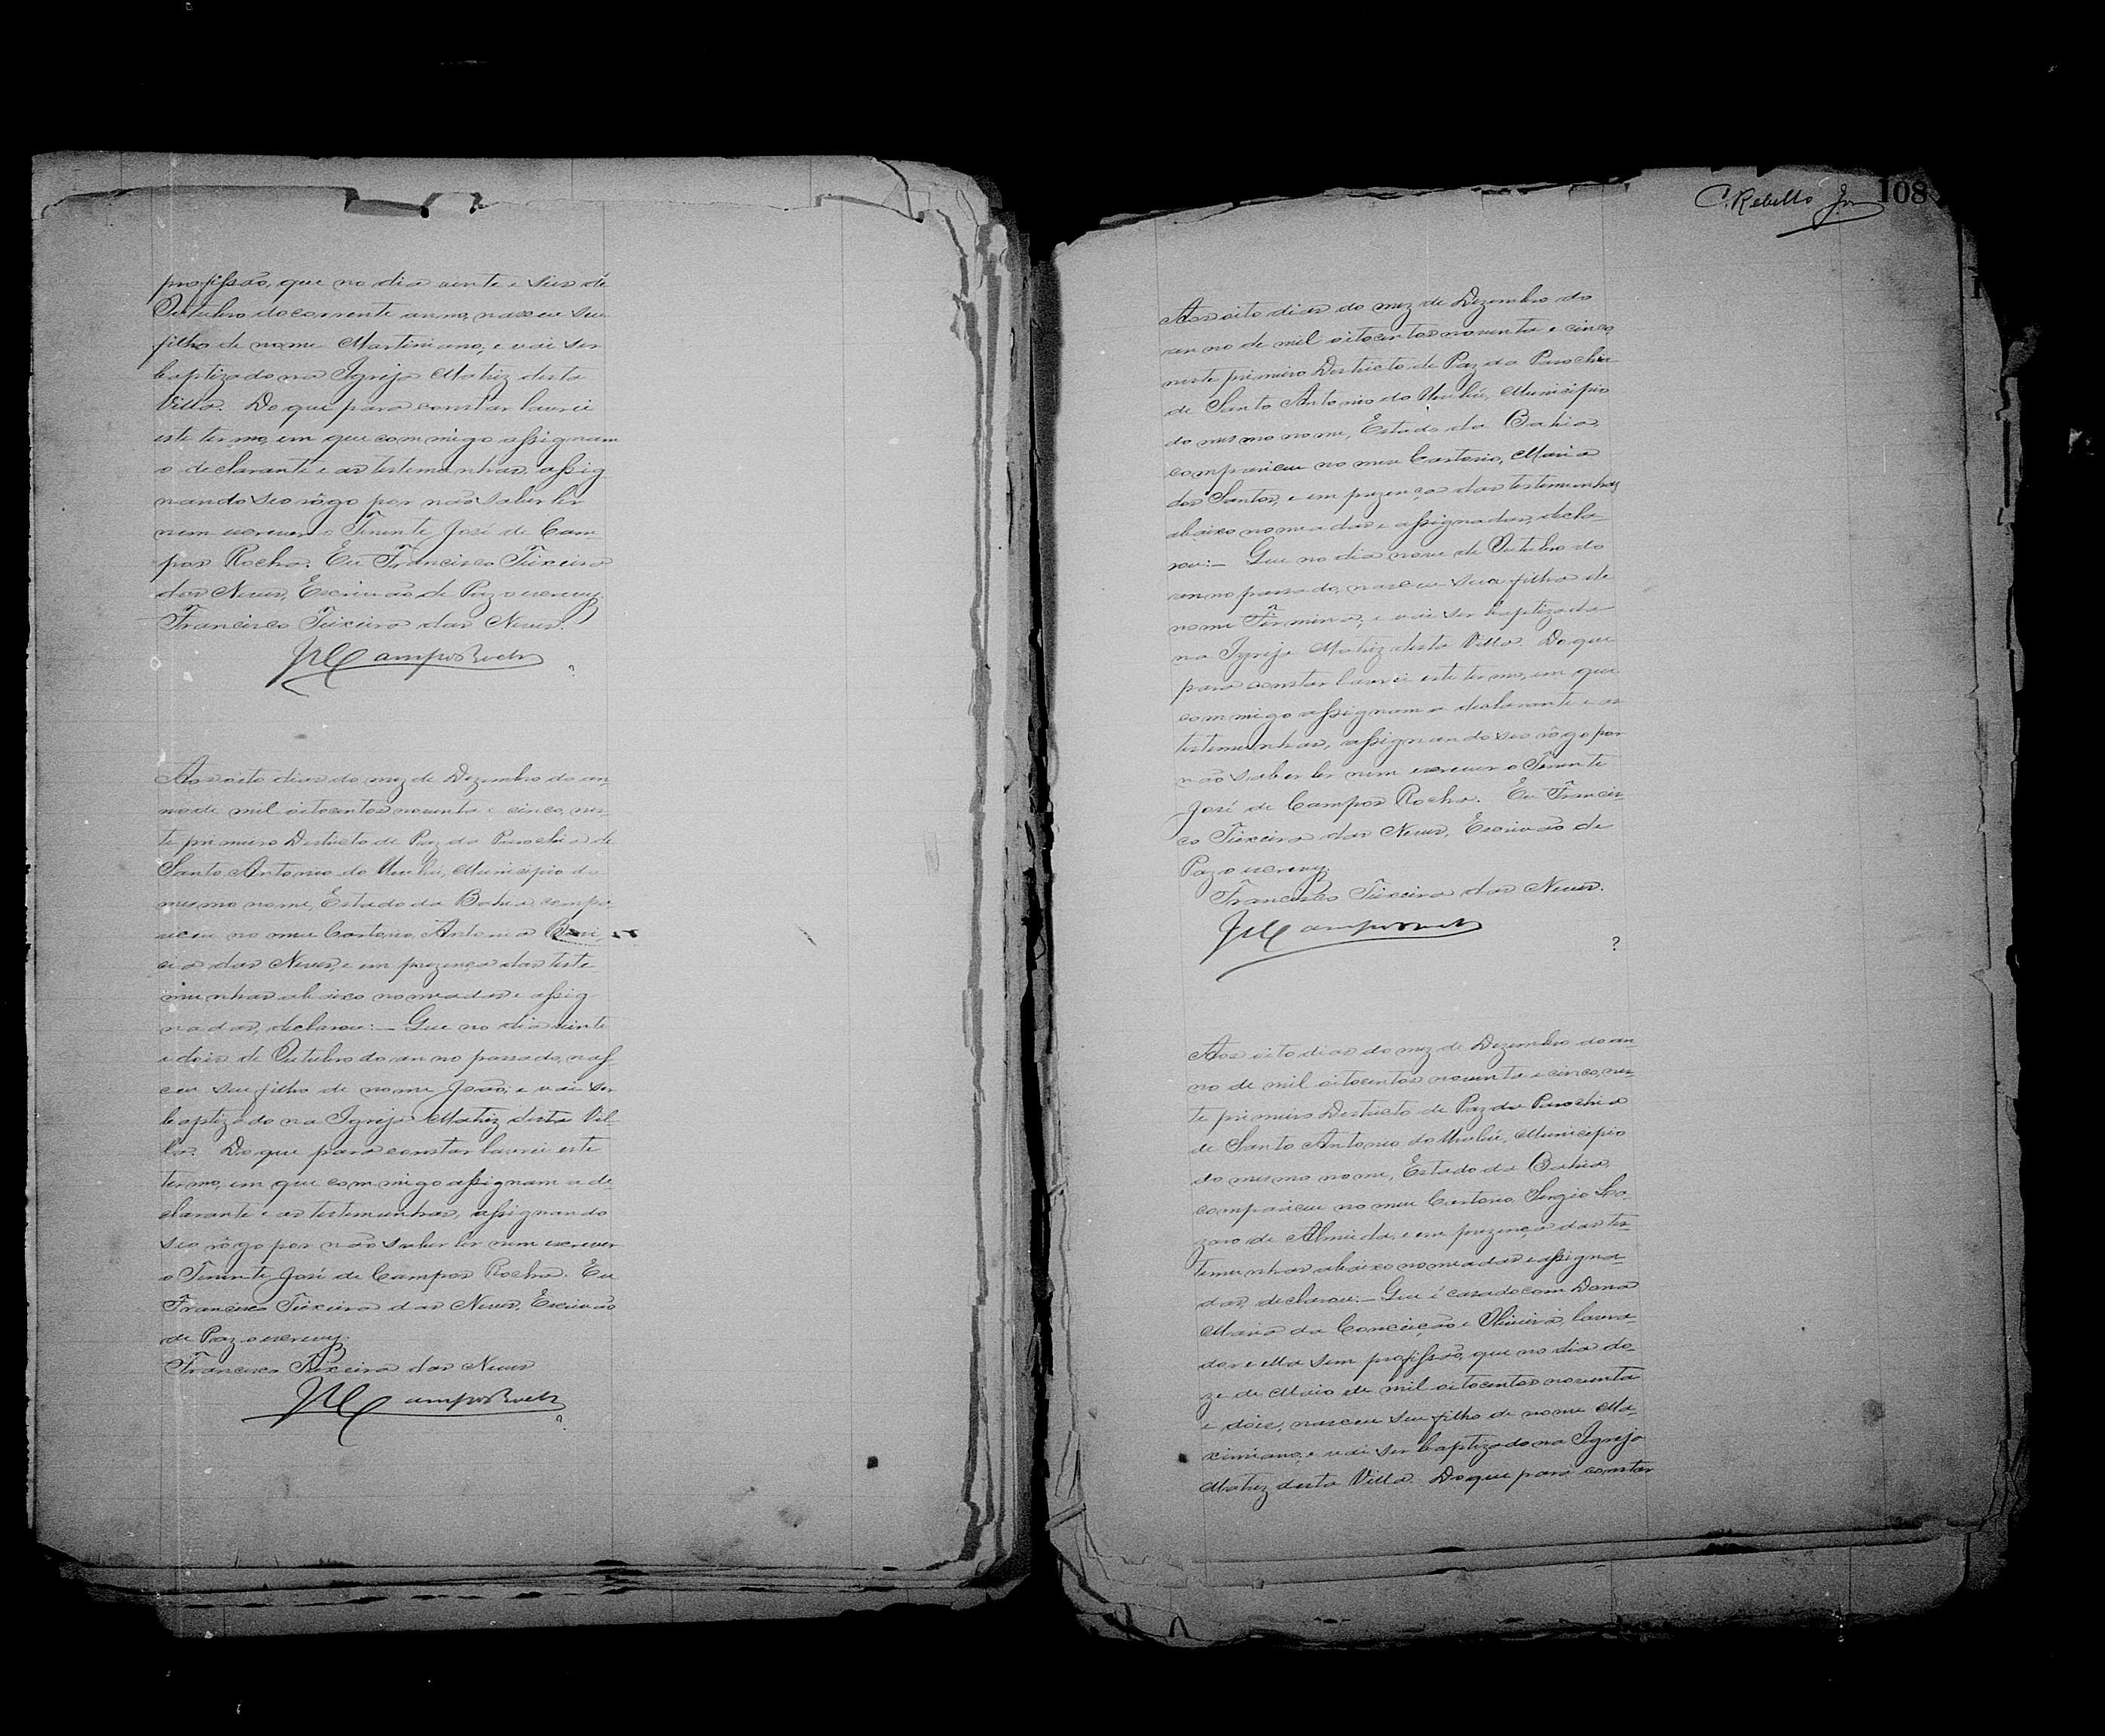 profissão, que no dia vinte e seis de
Outubro do corrente anno, nasceu seu
filho de nome Martiniano; e vai ser
baptizado na Igreja Matriz desta
Villa. Do que para constar lavrei
este termo, em que commigo assignam
o declarante e as testemunhas, assig
nando seo rôgo por não saber ler
nem escrever o Tenente José de Cam-
pos Rocha. Eu Francisco Teixeira
das Neves, Escrivão de Paz o escrevy.
Francisco Teixeira das Neves.
JCCamposRocha
?
Aos oito dias do mez de Dezembro do an-
no de mil oitocentos noventa e cinco, nes-
te primeiro Destricto de Paz da Parochia de
Santo Antonio do Municipio do
mesmo nome, Estado da Bahia, compa-
receu no meu Cartorio, Antonia
cia das Neves, e em prezença das teste
munhas abaixo nomeadas e assig
nadas, declarou:— Que no dia vinte
e dois de Outubro do anno passado, nas
ceu seu filho de nome João; e vai ser
baptizado na Igreja Matriz desta Vil-
la. Do que para constar lavrei este
termo, em que commigo assignam a de-
clarante e as testemunhas, assignando
seo rôgo por não saber ler nem escrever
o Tenente José de Campos Rocha. Eu
Francisco Teixeira das Neves Escrivão
de Paz o escrevy.
Francisco Teixeira das Neves
JCCamposRocha
?
C. Rebello Jor 108
Aos oito dias do mez de Dezembro do
anno de mil oitocentos noventa e cinco,
neste primeiro Destricto de Paz da Parochia
de Santo Antonio do Municipio
do mesmo nome, Estado da Bahia,
compareceu no meu Cartorio, Maria
dos Santos, e em prezença das testemunhas
abaixo nomeadas e assignadas, decla-
rou:— Que no dia nove de Outubro do
anno passado, nasceu sua filha de
nome Firmina; e vai ser baptizada
na Igreja Matriz desta Villa. Do que
para constar lavrei este termo, em que
commigo assignam a declarante e as
testemunhas, assignando seo rôgo por
não saber ler nem escrever o Tenente
José de Campos Rocha. Eu Francis-
co Teixeira das Neves, Escrivão de
Paz o escrevy.
Francisco Teixeira das Neves.
JCCamposRocha
?
Aos oito dias do mez de Dezembro do an-
no de mil oitocentos noventa e cinco, nes-
te primeiro Destricto de Paz da Parochia
de Santo Antonio do Municipio
do mesmo nome, Estado da Bahia,
compareceu no meu Cartorio, Sergio
zaro de Almeida, e em prezença das tes-
temunhas abaixo nomeadas e assigna-
das, declarou:— Que é casado com Dona
Maria da Conceição e Oliveira, lavra-
dor e ella sem profissão, que no dia do-
ze de Maio de mil oitocentos noventa
e dois, nasceu seu filho de nome Ma-
ximiano; e vai ser baptizado na Igreja
Matriz desta Villa. Do que para constar